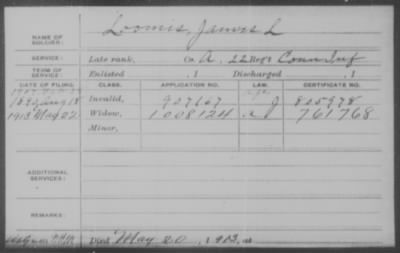 NAME OF SOLDIER: Loomis, James L
SERVICE: Late rank, Co. A, 22 Reg't Conn Inf
TERM OF SERVICE: Enlisted , 1 Discharged , 1
DATE OF FILING. CLASS. APPLICATION NO. LAW. CERTIFICATE NO.
Invalid, 907167 J 805978
1913 May 22 Widow, 1008124 761768
Minor,
ADDITIONAL SERVICES:
REMARKS:
Died May 20, 1913, at